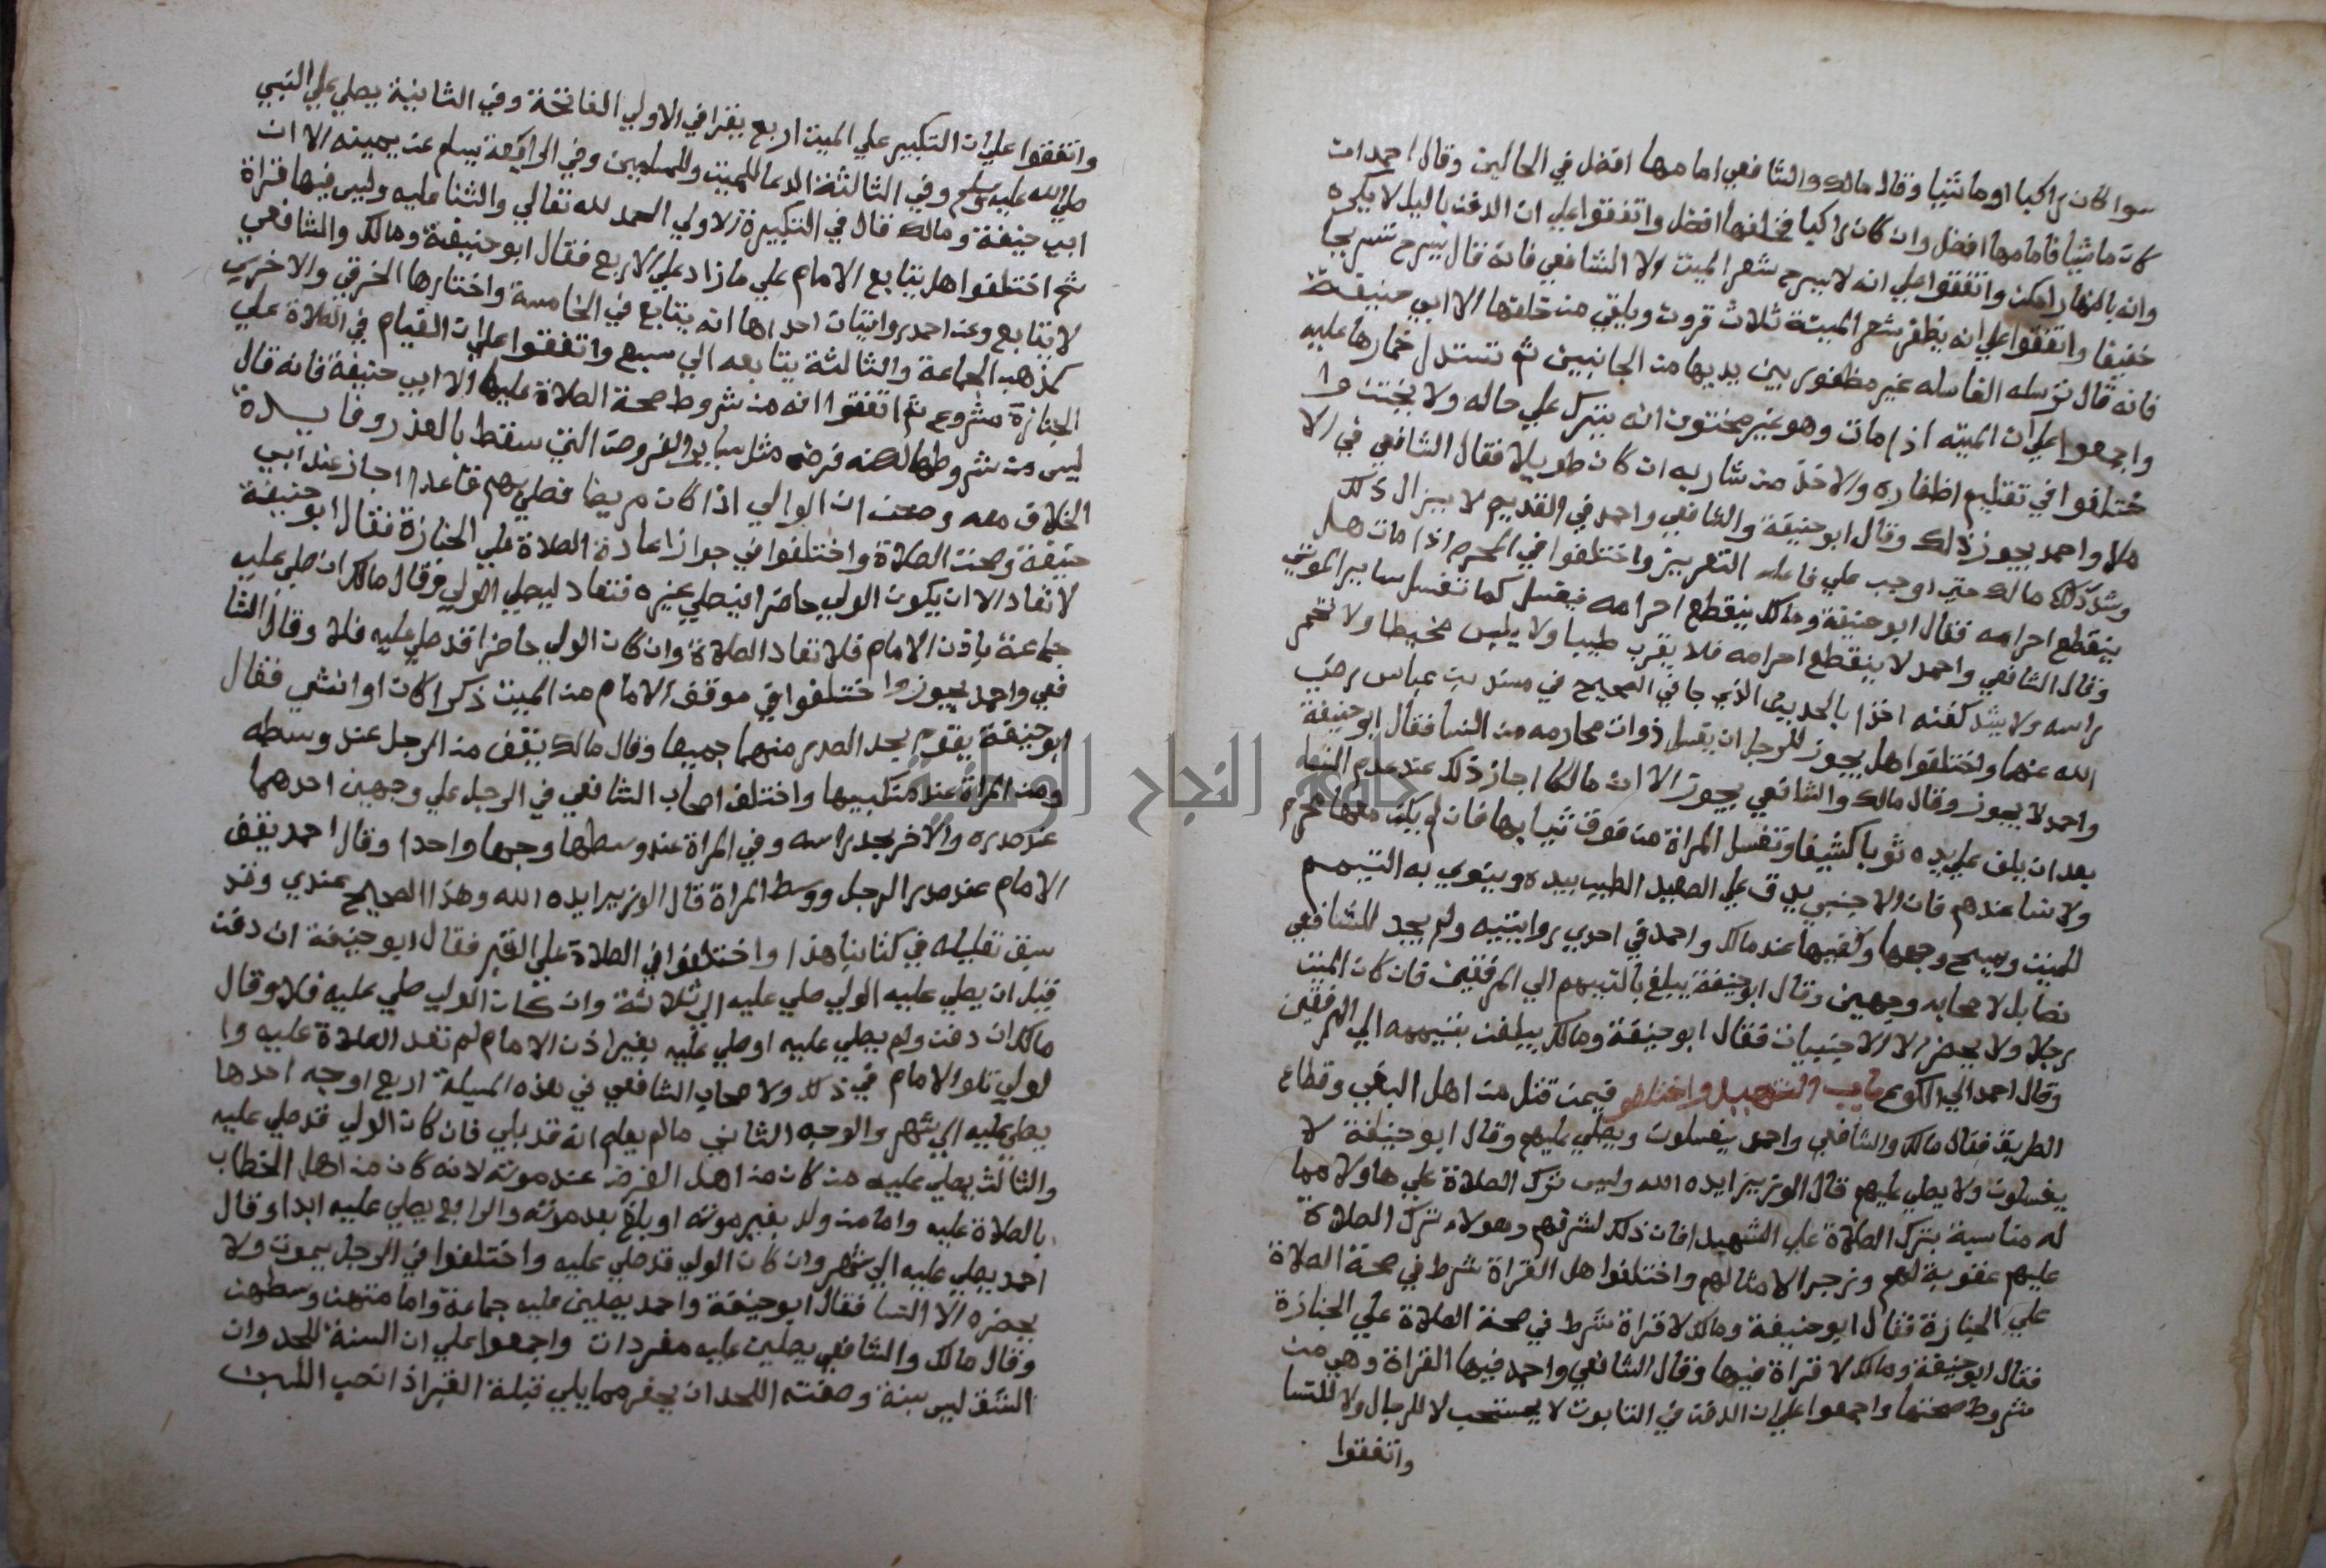 سوا كان راكبا او ماشيا وقال مالك والشافعي امامها افضل في الحالين وقال احمد ان
كان ماشيا فامامها افضل وان كان راكبا فخلفها افضل واتفقوا علي ان الدفن بالليل لا يكره
وانه بالنهار امكن واتفقوا علي انه لا يسرح شعر الميت الا الشافعي فانه قال يسرح تسريحا
خفيفا واتفقوا علي انه يظفر شعر الميتة ثلاث قرون ويلقي من خلفها الا ابي حنيفة
فانه قال ترسله الغاسله غير مظفور بين يديها من الجانبين ثم تسدل خمارها عليه
واجمعوا علي ان الميته اذا مات وهو غير مختون انه يترك علي حاله ولا يختن وا
ختلفوا في تقليم اظفاره والاخذ من شاربه ان كان طويلا فقال الشافعي في الا
ملا واحمد يجوز ذلك وقال ابو حنيفة والشافعي واحمد في القديم لا يزال ذلك
وشدد ذلك مالك حتي اوجب علي فاعله التعزيز واختلفوا في المحرم اذا مات هل
ينقطع احرامه فقال ابو حنيفة ومالك ينقطع احرامه فيغسل كما تغسل ساير الموتي
وقال الشافعي واحمد لا ينقطع احرامه فلا يقرب طيبا ولا يلبس مخيطا ولا تخمر
راسه ولا يشد كفنه اخذا بالحديث الذي جا في الصحيح في مسند بن عباس رضي
الله عنهما واختلفوا هل يجوز للرجل ان يغسل ذوات محارمه من النسا فقال ابو حنيفة
واحمد لا يجوز وقال مالك والشافعي يجوز الا ان مالكا اجاز ذلك عند عدم النسا
بعد ان يلف علي يده ثوبا كثيفا وتغسل المراة من فوق ثيابها فان لم يكن معها محرم
ولا نسا عندهم فان الاجنبي يدق علي الصعيد الطيب بيده وينوي به التيمم
للميت ويمسح وجهها وكفيها عند مالك واحمد في احدي روايتيه ولم يجد للشافعي
نصا بل لاصحابه وجهين وقال ابو حنيفة يبلغ بالتيمم الي المرفقين فان كان الميت
رجلا ولا يحضر الا الاجنبيات فقال ابو حنيفة ومالك يبلغن بتيممه الي المرفقين
وقال احمد الي الكوع باب الشهيد واختلفو فيمن قتل من اهل البغي وقطاع
الطريق فقال مالك والشافعي واحمد يغسلون ويصلي عليهم وقال ابو حنيفة لا
يغسلون ولا يصلي عليهم قال الوزير ايده الله وليس ترك الصلاة علي هاولا مما
له مناسبة بترك الصلاة علي الشهيد اذ ان ذلك لشرفهم وهولاء ترك الصلاة
عليهم عقوبة لهم وزجر الامثالهم واختلفوا هل القراة شرط في صحة الصلاة
علي الجنازة فقال ابو حنيفة ومالك لا قراة شرط في صحة الصلاة علي الجنازة
فقال ابو حنيفة ومالك لا قراة فيها وقال الشافعي واحمد فيها القراة وهي من
شروط صحتها واجمعوا علي ان الدفن في التابوت لا يستحب لا للرجال ولا للنسا
واتفقوا
واتفقوا علي ان التكبير علي الميت اربع يقرا في الاولي الفاتحة وفي الثانية يصلي علي النبي
صلي الله عليه وسلم وفي الثالثة الدعا للميت وللمسلمين وفي الرابعة يسلم عن يمينه الا ان
ابي حنيفة ومالك قال في التكبيرة الاولي الحمد لله تعالي والثنا عليه وليس فيها قراة
ثم اختلفوا هل يتابع الامام علي ما زاد علي الاربع فقال ابو حنيفة ومالك والشافعي
لا يتابع وعن احمد روايتان احداها انه يتابع في الخامسة واختارها الخرقي والاخري
كمذهب الجماعة والثالثة يتابعه الي سبع واتفقوا علي ان القيام في الصلاة علي
الجنازة مشروع ثم اتفقوا انه من شروط صحة الصلاة عليها الا ابي حنيفة فانه قال
ليس من شروطها لكنه فرض مثل ساير الفروض التي سقط بالعذر وفايدة
الخلاف معه وصحت ان الوالي اذا كان مريضا فصلي بهم قاعدا اجاز عند ابي
حنيفة وصحت الصلاة واختلفوا في جواز اعادة الصلاة علي الجنازة فقال ابو حنيفة
لا تعاد الا ان يكون الولي حاضرا فيصلي غيره فتعاد ليصلي الولي وقال مالك ان صلي عليه
جماعة باذن الامام فلا تعاد الصلاة وان كان الولي حاضرا قد صلي عليه فلا وقال الشا
فعي واحمد يجوز واختلفوا في موقف الامام من الميت ذكرا كان او انثي فقال
ابو حنيفة يقوم بحد الصدر منهما جميعا وقال مالك يقف من الرجل عند وسطه
ومن المراة عند منكبيها واختلف اصحاب الشافعي في الرجل علي وجهين احدهما
عند صدره والاخر بحد راسه وفي المراة عند وسطها وجها واحدا وقال احمد يقف
الامام عند صدر الرجل ووسط المراة قال الوزير ايده الله وهذا الصحيح عندي وقد
سبق تعليله في كتابنا هذا واختلفوا في الصلاة علي القبر فقال ابو حنيفة ان دفن
قبل ان يصلي عليه الولي صلي عليه الي ثلاثة وان كان الولي صلي عليه فلا وقال
مالك ان دفن ولم يصلي عليه او صلي عليه بغير اذن الامام لم تعد الصلاة عليه وا
لولي تلو الامام في ذلك ولاصحاب الشافعي في هذه المسيلة اربع اوجه احدها
يصلي عليه الي شهر والوجه الثاني مالم يعلم انه قد بلي فان كان الولي قد صلي عليه
والثالث يصلي عليه من كان من اهل الفرض عند موته لانه كان من اهل الخطاب
بالصلاة عليه واما من ولد بغير موته او بلغ بعد موته والرابع يصلي عليه ابدا وقال
احمد يصلي عليه الي شهر وان كان الولي قد صلي عليه واختلفوا في الرجل يموت ولا
يحضره الا النسا فقال ابو حنيفة واحمد يصلين عليه جماعة وامامتهن وسطهن
وقال مالك والشافعي يصلين عليه مفردات واجمعوا علي ان السنة اللحد وان
الشق ليس بسنة وصفته اللحد ان يحفر مما يلي قبلة القبر اذ انصب اللبن
جامعة النجاح الوطنية